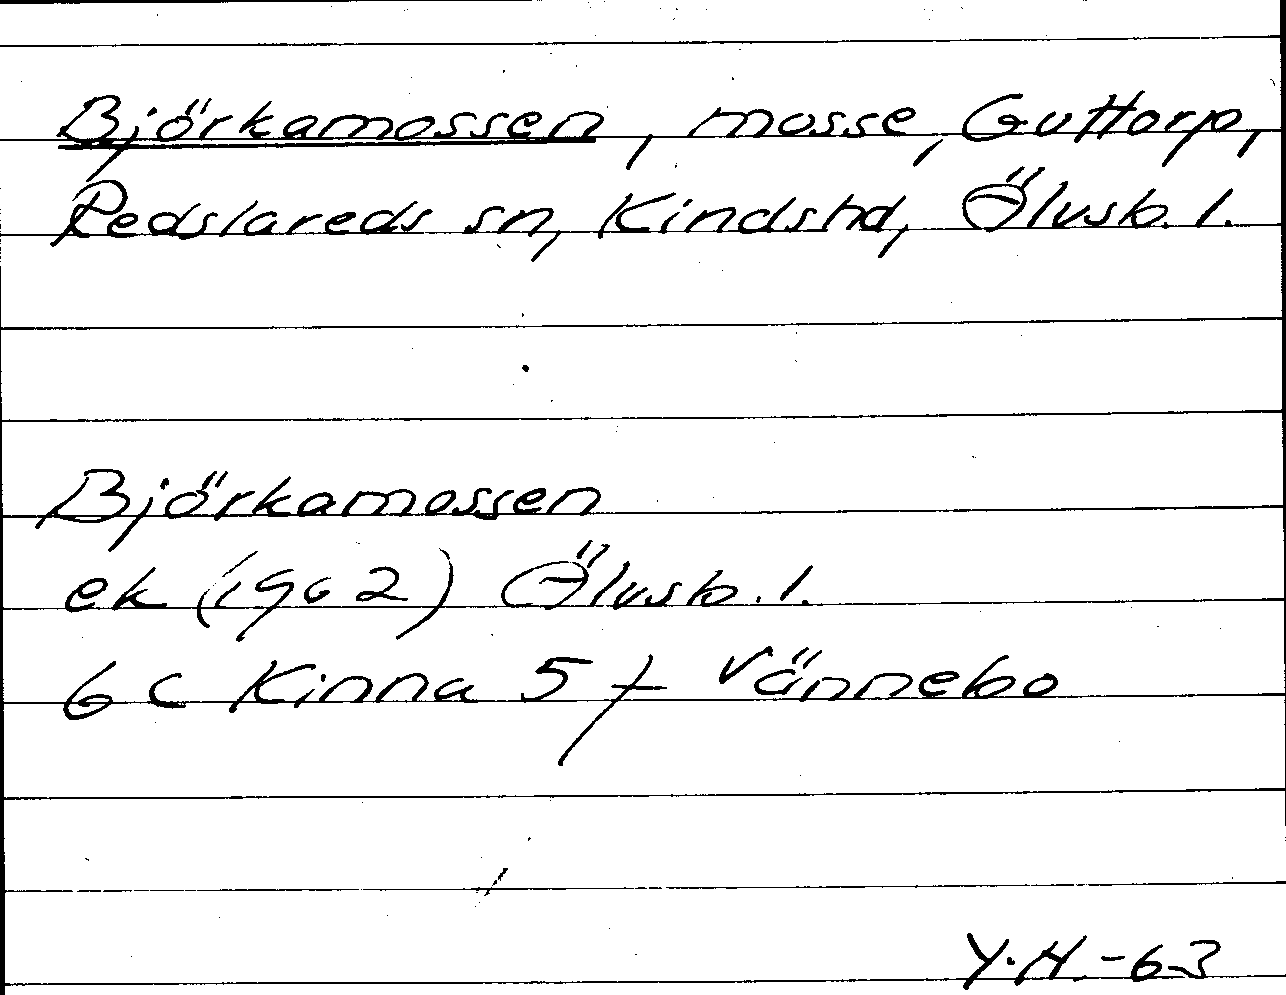 Björkamossen, mosse, Guttorp,
Redslareds sn, Kindshd, Älvsb. l.
Björkamossen
ek (1962) Älvsb. l.
6 C Kinna 5 f Vännebo
Y.H.-63